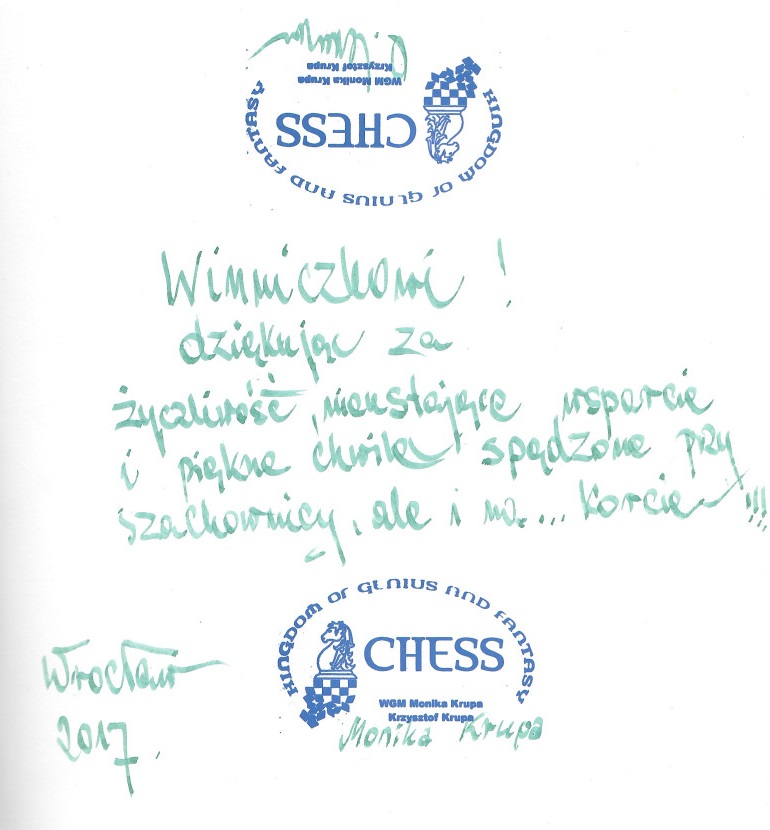 WGM Monika Krupa
Krzysztof Krupa
CHESS
KINGDOM OF GENIUS AND FANTASY
Winniczkowi!
dziękując za
życzliwość, nieustające wsparcie
i piękne chwile spędzone przy
szachownicy, ale i na... korcie!!!
KINGDOM OF GENIUS AND FANTASY
CHESS
WGM Monika Krupa
Krzysztof Krupa
Monika Krupa
Wrocław
2017.